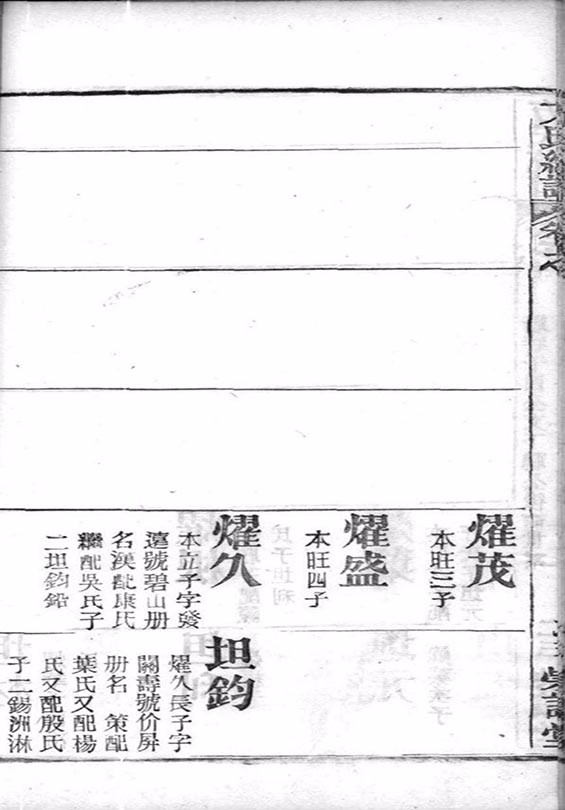 氏
耀茂
本旺三子
耀盛
本旺四子
耀久
本立子字發
遠號碧山册
名渼配康氏
繼配吳氏子
二坦鈞鉛
坦鈞
耀久長子字
關壽號价屏
册名 策配
葉氏又配楊
氏又配殷氏
子二錫洲淋